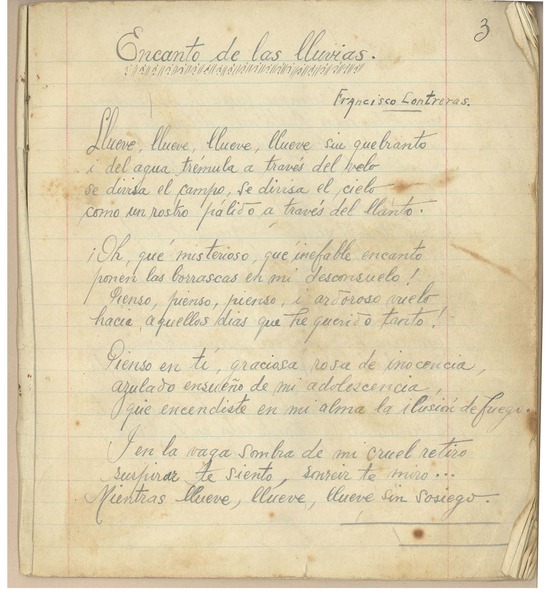 3
Encanto de las lluvias.
Francisco Contreras.
Llueve, llueve, llueve, llueve sin quebranto
i del agua trémula a través del velo
se divisa el campo, se divisa el cielo
como un rostro pálido a través del llanto.
¡Oh, qué misterioso, que inefable encanto
ponen las borrascas en mi desconsuelo!
Pienso, pienso, pienso, i ardoroso vuelo
hacia aquellos dias que he querido tanto!
Pienso en tí, graciosa rosa de inocencia,
azulado ensueño de mi adolescencia,
que encendiste en mi alma la ilusión de fuego.
I en la vaga sombra de mi cruel retiro
suspirar te siento, sonreir te miro...
Mientras llueve, llueve, llueve sin sosiego.